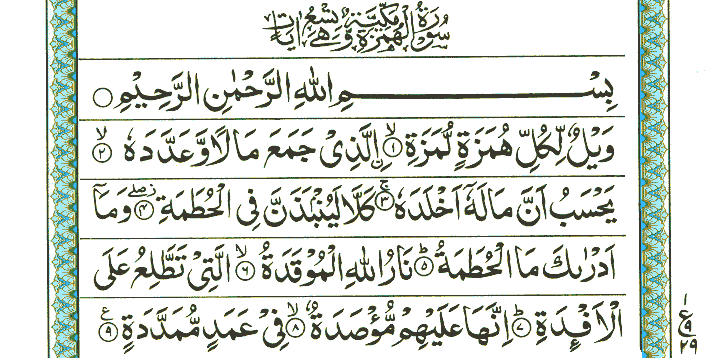 سُوْرَةُ الْهُمَزَةِ مَكِّيَّةٌ وَّهِيَ تِسْعُ اٰيَاتٍ
بِسْمِ اللّٰهِ الرَّحْمٰنِ الرَّحِيْمِ ○
وَيْلٌ لِّكُلِّ هُمَزَةٍ لُّمَزَةِ ۙ﴿۱﴾ اِ۟لَّذِىْ جَمَعَ مَالًا وَّعَدَّدَهٗ ۙ﴿۲﴾
يَحْسَبُ اَنَّ مَالَهٗۤ اَخْلَدَهٗ ۚ﴿۳﴾ كَلَّا لَيُنْۢبَذَنَّ فِى الْحُطَمَةِ ۖ﴿۴﴾ وَمَاۤ
اَدْرٰٮكَ مَا الْحُطَمَةُ ؕ﴿۵﴾ نَارُ اللّٰهِ الْمُوْقَدَةُ ۙ﴿۶﴾ الَّتِىْ تَطَّلِعُ عَلَى
الْاَفْـِٕدَةِ ؕ﴿۷﴾ اِنَّهَا عَلَيْهِمْ مُّؤْصَدَةٌ ۙ﴿۸﴾ فِىْ عَمَدٍ مُّمَدَّدَةٍ ﴿۹﴾
۱
ع
۹
۲۹